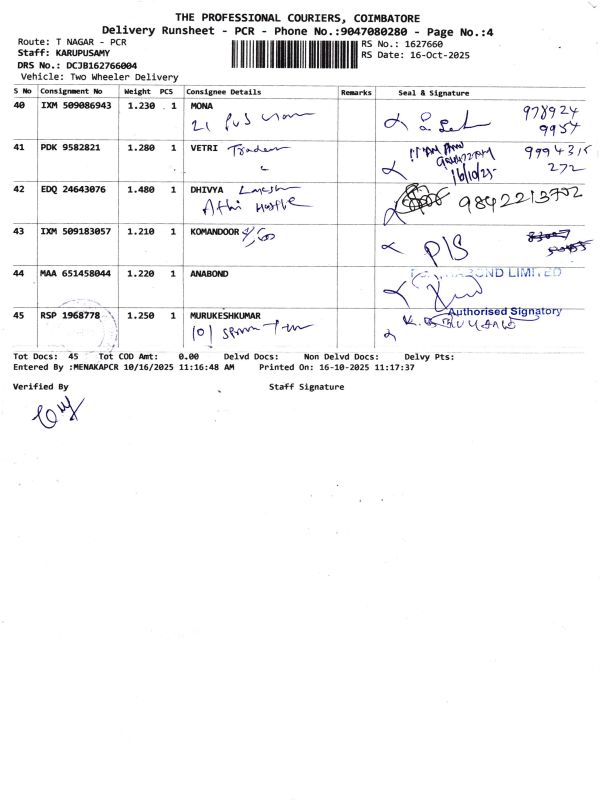 THE PROFESSIONAL COURIERS, COIMBATORE
Delivery Runsheet - PCR - Phone No.:9047080280 - Page No.:4
Route: T NAGAR - PCR
Staff: KARUPUSAMY
DRS No.: DCJB162766004
Vehicle: Two Wheeler Delivery
RS No.: 1627660
RS Date: 16-Oct-2025
S No Consignment No Weight PCS Consignee Details Remarks Seal & Signature
40 IXM 509086943 1.230 1 MONA 978924
21 9954
41 PDK 9582821 1.280 1 VETRI Traders 9994315
272
16/10/25
42 EDQ 24643076 1.480 1 DHIVYA 9842213702
Athi
43 IXM 509183057 1.210 1 KOMANDOOR P/S
44 MAA 651458044 1.220 1 ANABOND
BOND LIMITED
Authorised Signatory
45 RSP 1968778 1.250 1 MURUKESHKUMAR
101
Tot Docs: 45 Tot COD Amt: 0.00 Delvd Docs: Non Delvd Docs: Delvy Pts:
Entered By :MENAKAPCR 10/16/2025 11:16:48 AM Printed On: 16-10-2025 11:17:37
Verified By Staff Signature